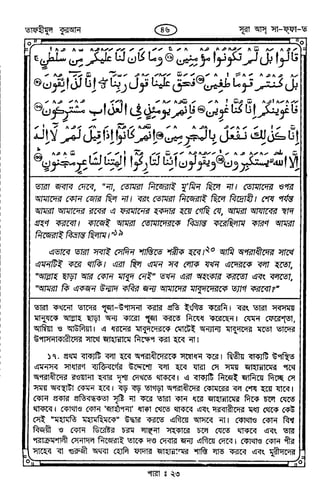 তাফহীমুল কুরআন
৪৬
সূরা আস্ সা-ফ্ফা-ত
قَالُوا بَلْ لَّمْ تَكُونُوا مُؤْمِنِينَ ۝ وَمَا كَانَ لَنَا عَلَيْكُمْ مِّنْ سُلْطٰنٍ ۚ
بَلْ كُنْتُمْ قَوْمًا طٰغِينَ ۝ فَحَقَّ عَلَيْنَا قَوْلُ رَبِّنَآ ۖ إِنَّا لَذَآئِقُونَ ۝
فَأَغْوَيْنٰكُمْ إِنَّا كُنَّا غٰوِينَ ۝ فَإِنَّهُمْ يَوْمَئِذٍ فِي الْعَذَابِ مُشْتَرِكُونَ ۝
إِنَّا كَذٰلِكَ نَفْعَلُ بِالْمُجْرِمِينَ ۝ إِنَّهُمْ كَانُوٓا إِذَا قِيلَ لَهُمْ لَآ إِلٰهَ
إِلَّا اللّٰهُ يَسْتَكْبِرُونَ ۝ وَيَقُولُونَ أَئِنَّا لَتَارِكُوٓا اٰلِهَتِنَا لِشَاعِرٍ مَّجْنُونٍ ۝
তারা জবাব দেবে, "না, তোমরা নিজেরাই মু'মিন ছিলে না। তোমাদের ওপর
আমাদের কোন জোর ছিল না। বরং তোমরা নিজেরাই ছিলে বিদ্রোহী। শেষ পর্যন্ত
আমরা আমাদের রবের এ ফরমানের হকদার হয়ে গেছি যে, আমরা আযাবের স্বাদ
গ্রহণ করবো। কাজেই আমরা তোমাদেরকে বিভ্রান্ত করেছিলাম কারণ আমরা
নিজেরাই বিভ্রান্ত ছিলাম।১৯
এভাবে তারা সবাই সেদিন শাস্তিতে শরীক হবে।২০ আমি অপরাধীদের সাথে
এমনটিই করে থাকি। এরা ছিল এমন সব লোক যখন এদেরকে বলা হতো,
"আল্লাহ ছাড়া আর কোন মাবুদ নেই" তখন এরা অহংকার করতো এবং বলতো,
"আমরা কি একজন উন্মাদ কবির জন্য আমাদের মাবুদদেরকে ত্যাগ করবো?"
তারা কখনো তাদের পূজা-উপাসনা করার প্রতি ইংগিত করেনি। বরং তারা সবসময়
মানুষকে আল্লাহ ছাড়া অন্য কারো পূজা করতে নিষেধ করেছেন। যেমন ফেরেশতা,
আম্বিয়া ও আউলিয়া। এ ধরনের মাবুদদেরকে মোটেই অন্যান্য মাবুদদের মতো তাদের
উপাসনাকারীদের সাথে জাহান্নামে নিক্ষেপ করা হবে না।
১৭. প্রথম বাক্যটি বলা হবে অপরাধীদেরকে সম্বোধন করে। দ্বিতীয় বাক্যটি উপস্থিত
এমনসব সাধারণ ব্যক্তিবর্গের উদ্দেশ্যে বলা হবে যারা সে সময় জাহান্নামের পথে
অপরাধীদের রওয়ানা হবার দৃশ্য দেখতে থাকবে। এ বাক্যটি নিজেই জানিয়ে দিচ্ছে সে
সময় অবস্থাটা কেমন হবে। বড় বড় তাগড়া অপরাধীদের কোমরের বল শেষ হয়ে যাবে।
কোন প্রকার প্রতিবন্ধকতা সৃষ্টি না করে তারা কান ধরে জাহান্নামের দিকে চলে যেতে
থাকবে। কোথাও কোন 'জাহাঁপনা' ধাক্কা খেতে থাকবে এবং দরবারীদের মধ্য থেকে কেউ
সেই "মহামতি মহামহিমকে" উদ্ধার করতে এগিয়ে আসবে না। কোথাও কোন বিশ্ব
বিজয়ী ও কোন ডিরেক্টর চরম লাঞ্ছনা সহকারে চলে যেতে থাকবে এবং তার
পরাক্রমশালী সেনাদল নিজেরাই তাকে দণ্ড দেবার জন্য এগিয়ে দেবে। কোথাও কোন পীর
সাহেব বা গুরুজী অথবা হোলি ফাদার জাহান্নামের শাস্তি লাভ করবে এবং মুরীদদের
পারা ঃ ২৩